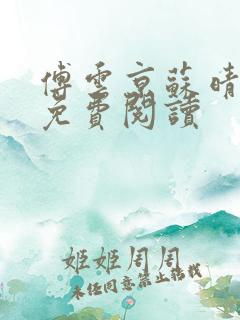 傅雲京蘇晴
免費閱讀
姬姬周周
未经同意禁止转载